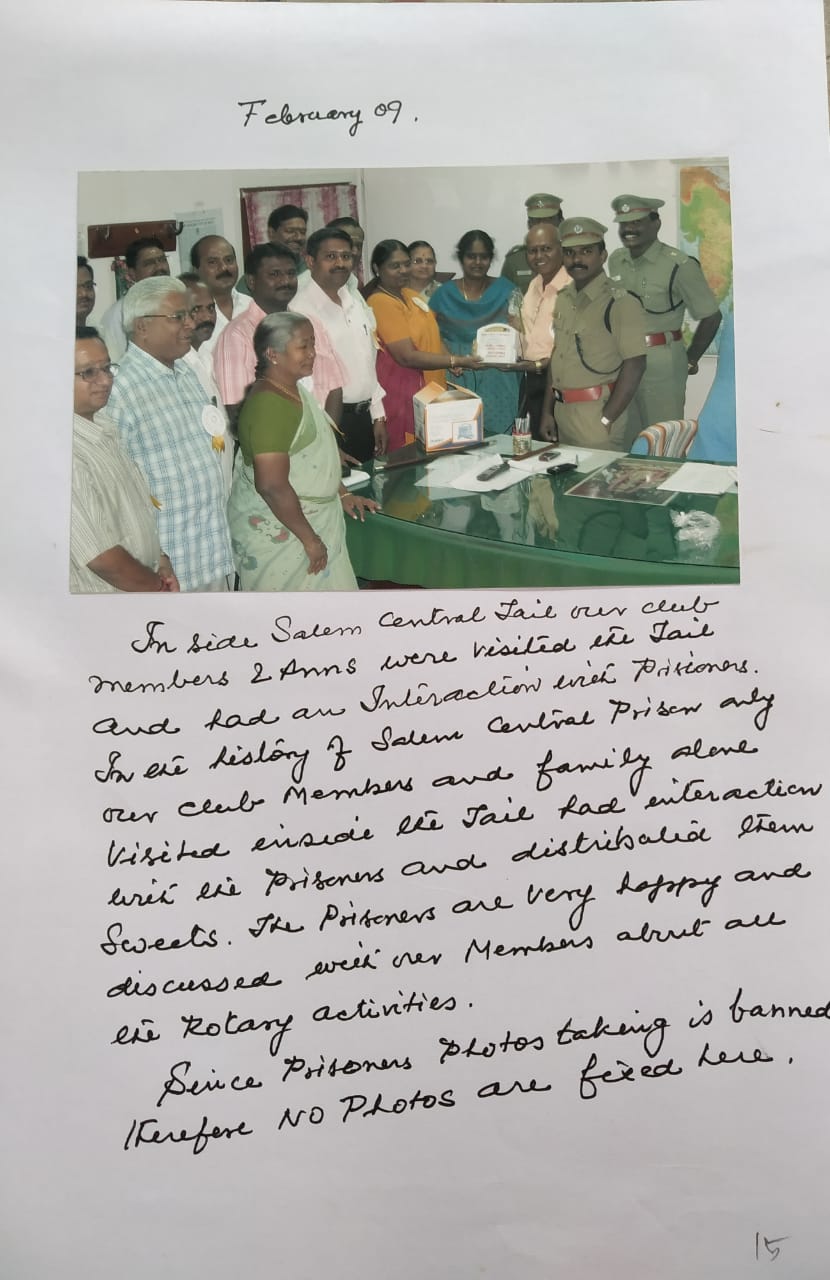 February 09.
In side Salem Central Jail our club
members & Anns were visited the Jail
and had an Interaction with Prisioners.
In the history of Salem Central Prison only
our club Members and family alone
visited inside the Jail had interaction
with the Prisoners and distributed them
Sweets. The Prisoners are very happy and
discussed with our Members about all
the Rotary activities.
Since Prisoners Photos taking is banned
therefore NO Photos are fixed here.
15